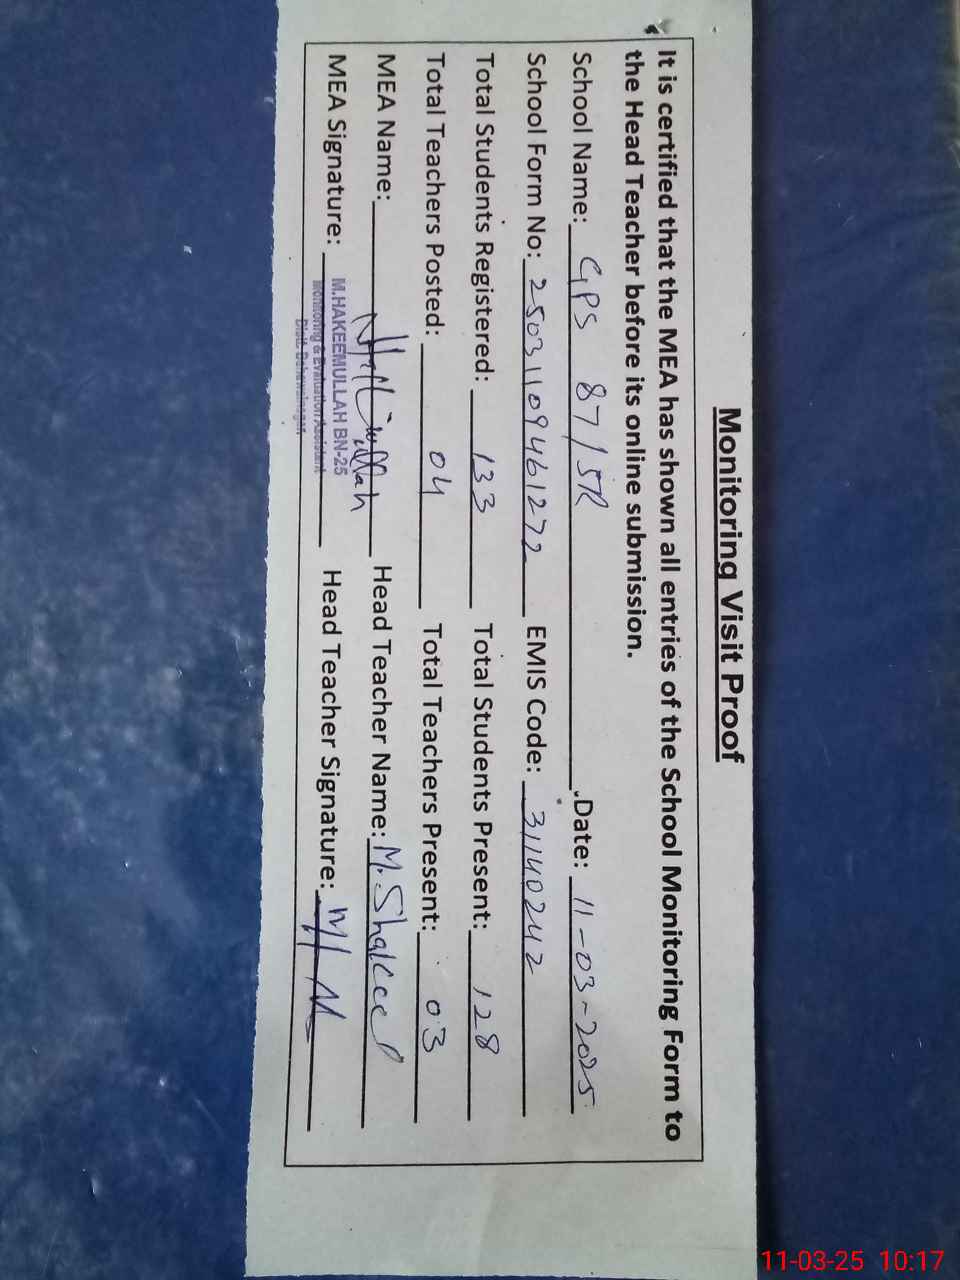 Monitoring Visit Proof
It is certified that the MEA has shown all entries of the School Monitoring Form to
the Head Teacher before its online submission.
School Name: GPS 87/5R Date: 11-03-2025
School Form No: 25031109461272 EMIS Code: 31140242
Total Students Registered: 133 Total Students Present: 128
Total Teachers Posted: 04 Total Teachers Present: 03
MEA Name: Head Teacher Name: M. Shakeel
MEA Signature: M.HAKEEMULLAH BN-25 Head Teacher Signature:
Monitoring & Evaluation Assistant
Distt. Bahawalnagar
11-03-25 10:17